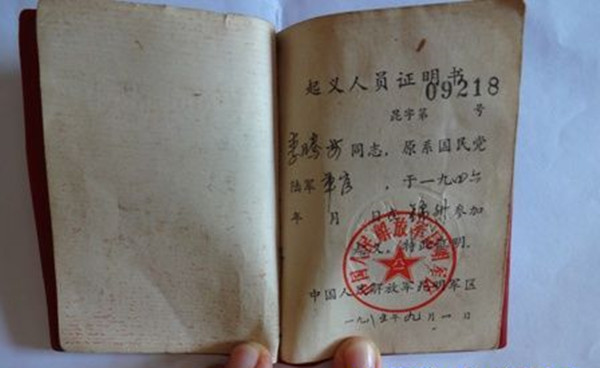 起义人员证明书
09218
昆字第 号
李腾 同志，原系国民党
陆军军官，于一九四六
年 月 日在锦州参加
起义，特此证明。
中国人民解放军昆明军区
一九八五年九月一日